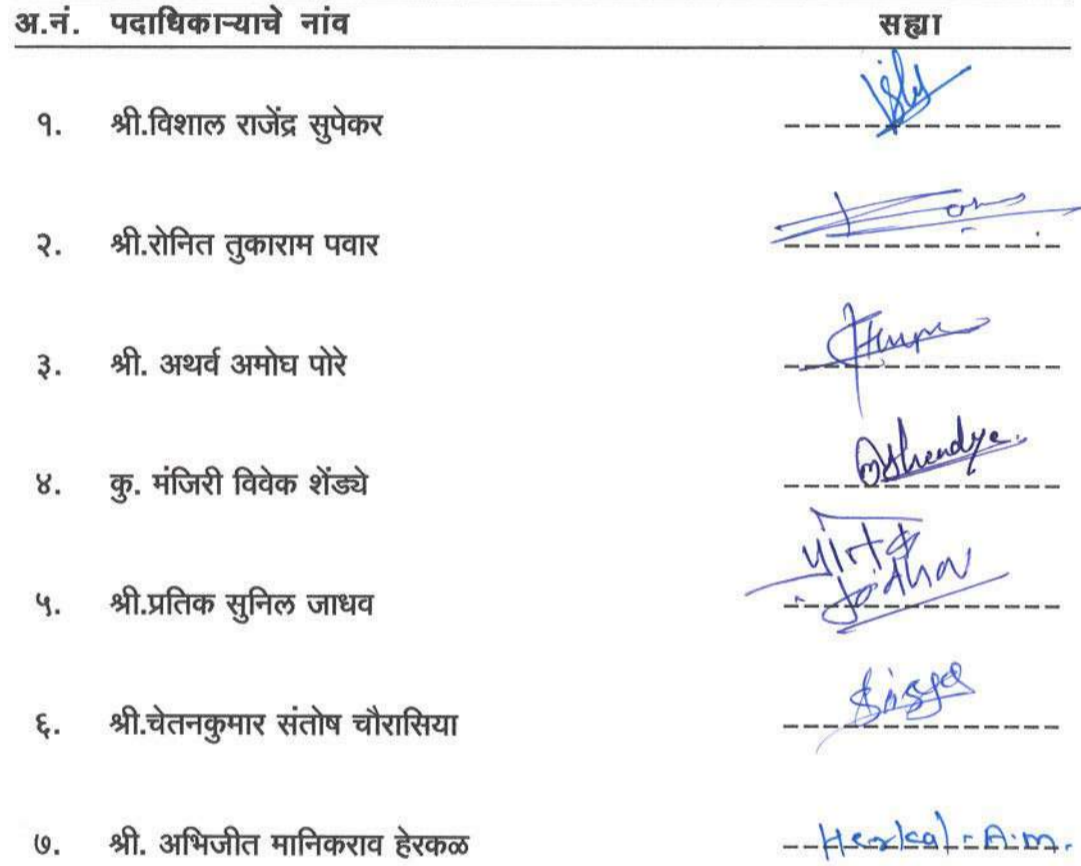 अ.नं. पदाधिकाऱ्याचे नांव सह्या
१. श्री.विशाल राजेंद्र सुपेकर
२. श्री.रोनित तुकाराम पवार
३. श्री. अथर्व अमोघ पोरे
४. कु. मंजिरी विवेक शेंड्ये MShendye.
५. श्री.प्रतिक सुनिल जाधव
६. श्री.चेतनकुमार संतोष चौरासिया
७. श्री. अभिजीत मानिकराव हेरकळ Herkal A.m.